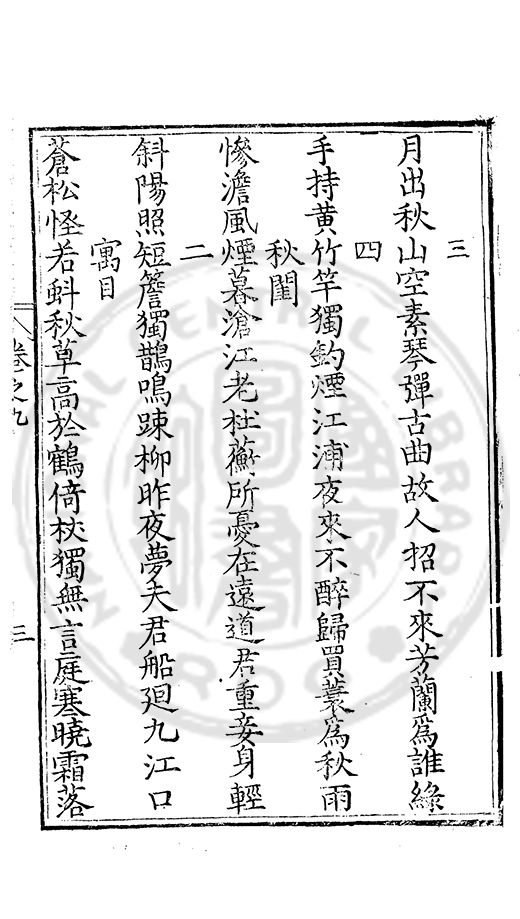 三
月出秋山空素琴彈古曲故人招不來芳蘭爲誰綠
四
手持黄竹竿獨釣煙江浦夜來不醉歸買蓑爲秋雨
秋閨
慘澹風煙暮滄江老杜蘅所憂在遠道君重妾身輕
二
斜陽照短簷獨鵲鳴踈柳昨夜夢夫君船迴九江口
寓目
蒼松怪若蚪秋草高於鶴倚杖獨無言庭寒曉霜落
卷之九
三